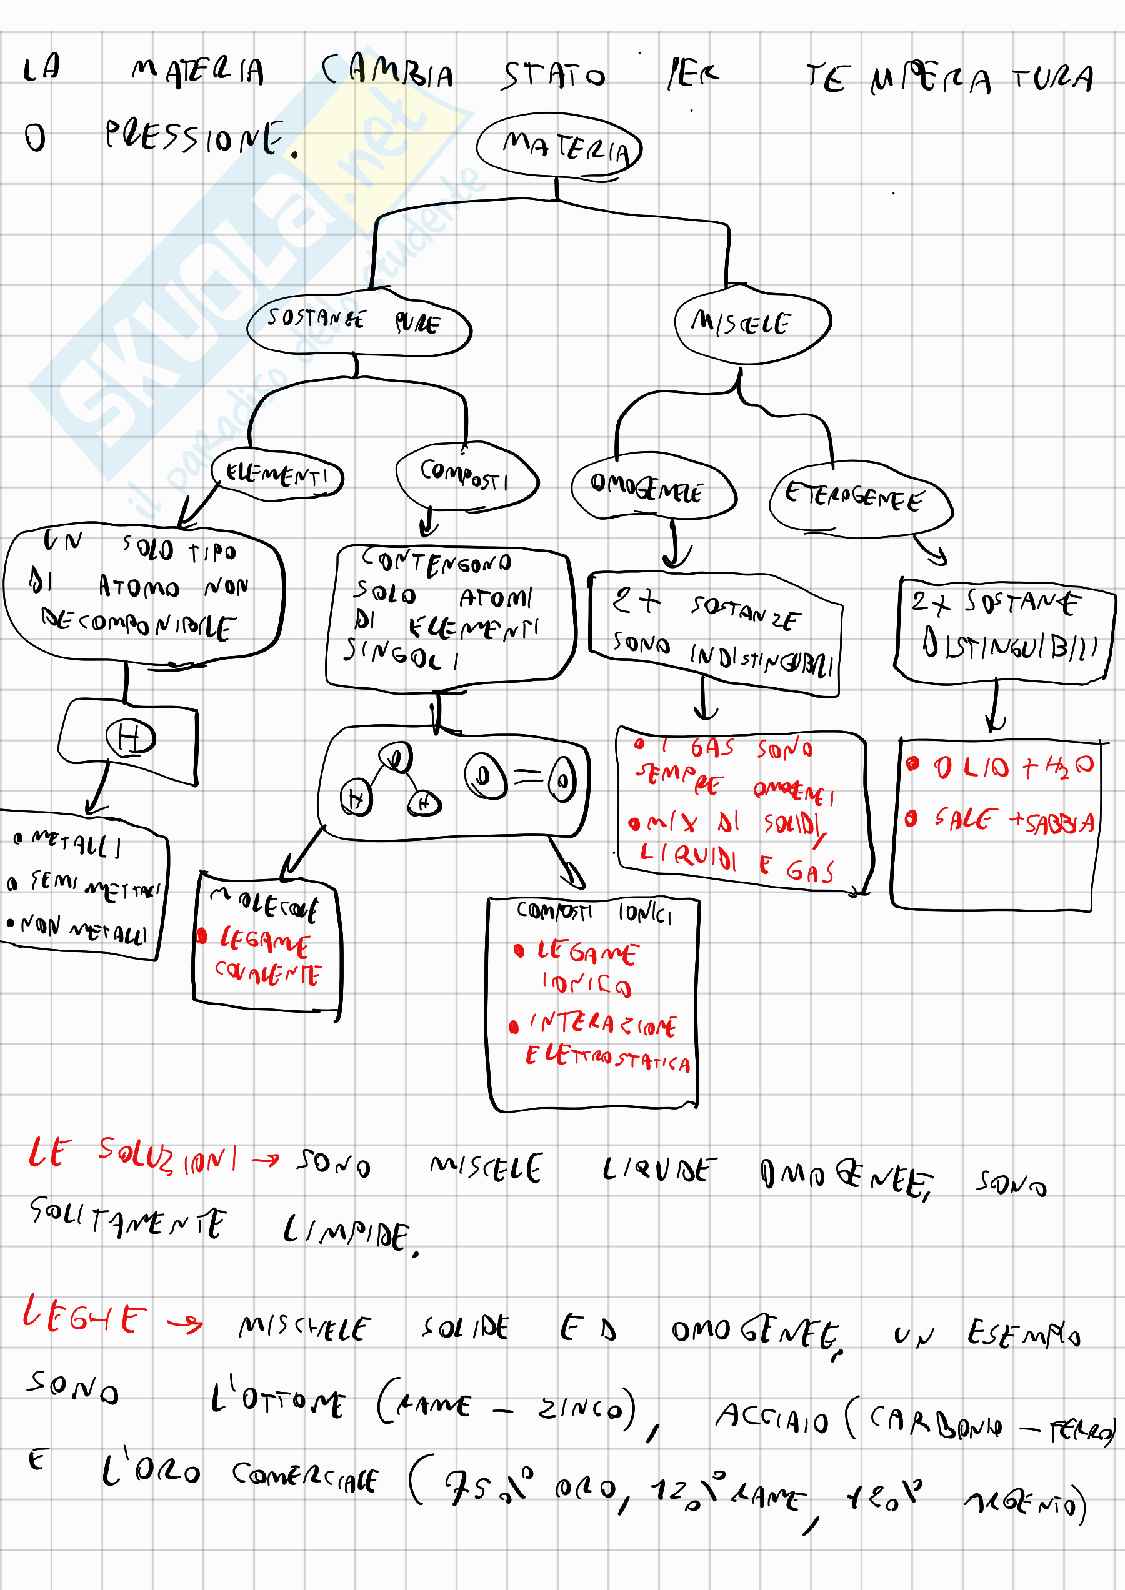 LA MATERIA CAMBIA STATO PER TEMPERATURA
O PRESSIONE.
MATERIA
SOSTANZE PURE
MISCELE
ELEMENTI
COMPOSTI
OMOGENEE
ETEROGENEE
UN SOLO TIPO
DI ATOMO NON
DECOMPONIBILE
CONTENGONO
SOLO ATOMI
DI ELEMENTI
SINGOLI
2+ SOSTANZE
SONO INDISTINGUBILI
2+ SOSTANE
DISTINGUIBILI
H
O
H H
O = O
• I GAS SONO
SEMPRE OMOGENEI
• MIX DI SOLIDI,
LIQUIDI E GAS
• OLIO + H2O
• SALE + SABBIA
• METALLI
• SEMI METTALI
• NON METALLI
MOLECOLE
• LEGAME
COVALENTE
COMPOSTI IONICI
• LEGAME
IONICO
• INTERAZIONE
ELETTROSTATICA
LE SOLUZIONI → SONO MISCELE LIQUIDE OMOGENEE, SONO
SOLITAMENTE LIMPIDE.
LEGHE → MISCHELE SOLIDE ED OMOGENEE, UN ESEMPIO
SONO L'OTTONE (RAME - ZINCO), ACCIAIO (CARBONIO - FERRO)
E L'ORO COMERCIALE (75% ORO, 12% RAME, 12% ARGENTO)
SKUOLA.net
il paradiso dello studente